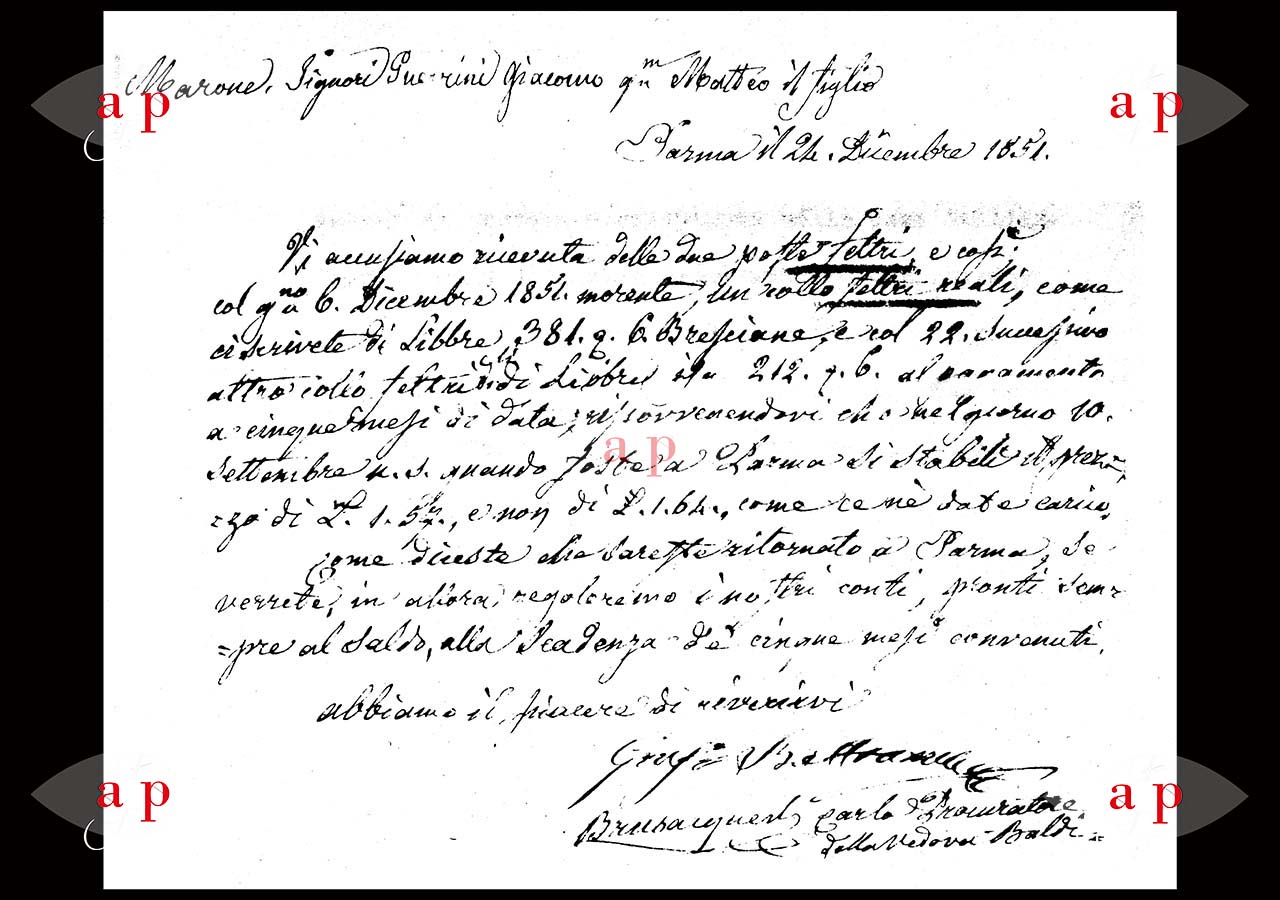 Marone. Signori Guerrini Giacomo qm Matteo il figlio
Parma il 24. Dicembre 1851.
Vi accusiamo ricevuta delle due poste feltri, e cosi:
col gno 6. Dicembre 1851. morente, un collo feltri reali, come
ci scrivete di Libbre 381. q. 6. Bresciane, e col 22. Successivo
altro collo feltri di Libbre 212. q. 6. al pagamento
a cinque mesi di data, risovvenendovi che nel giorno 10.
Settembre u. s. quando foste a Parma si stabili il prez=
=zo di L. 1. e non di L. 1.64., come ce nè date carico,
Come diceste che sareste ritornato a Parma, se
verrete, in allora regoleremo i nostri conti, pronti sem=
=pre al Saldo, alla Scadenza de' cinque mesi convenuti.
abbiamo il piacere di riverirvi
Carlo Procuratore
della Vedova Baldi
a p
a p
a p
a p
a p